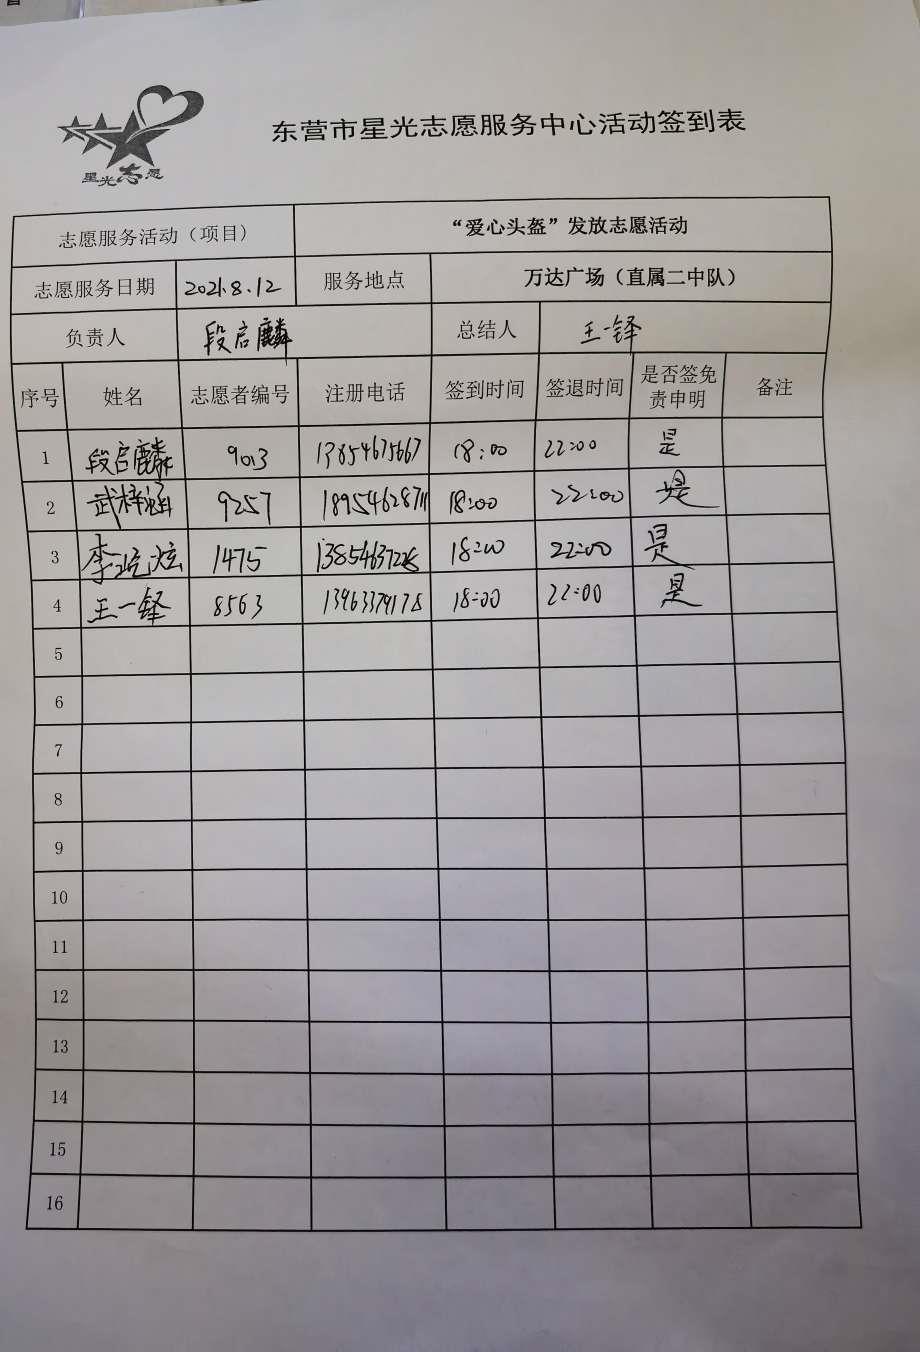 星光志愿
东营市星光志愿服务中心活动签到表
志愿服务活动（项目） “爱心头盔”发放志愿活动
志愿服务日期 2021.8.12 服务地点 万达广场（直属二中队）
负责人 段启麟 总结人 王一铎
序号 姓名 志愿者编号 注册电话 签到时间 签退时间 是否签免责申明 备注
1 段启麟 9013 13854675667 18:00 22:00 是
2 武梓涵 9257 18954628711 18:00 22:00 是
3 1475 18:00 22:00 是
4 王一铎 8563 13963379178 18:00 22:00 是
5
6
7
8
9
10
11
12
13
14
15
16